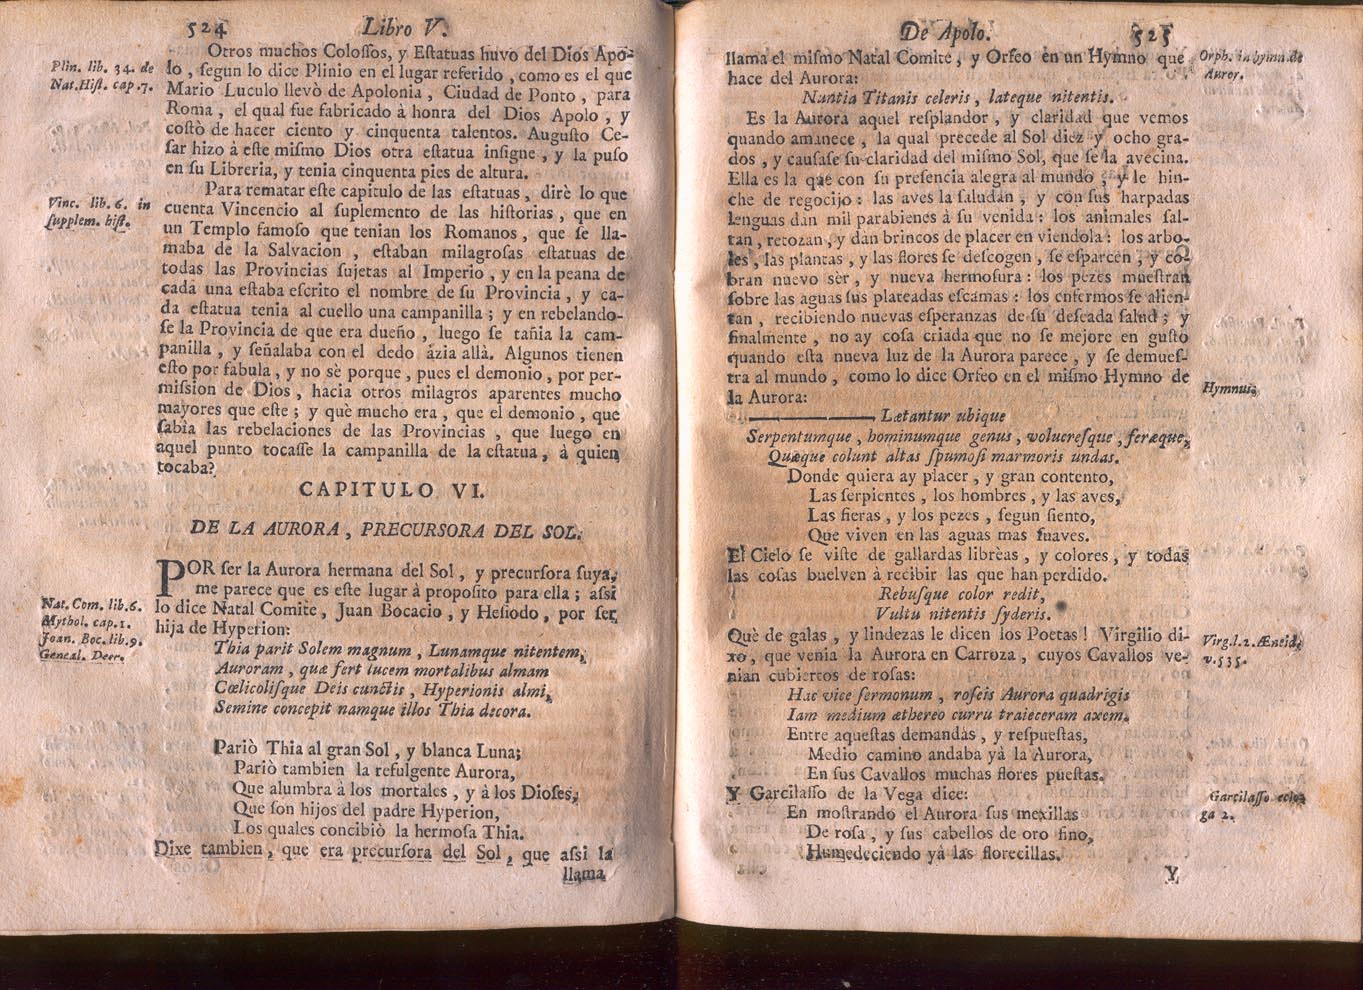 524 Libro V.
Otros muchos Coloſſos, y Eſtatuas huvo del Dios Apo-
lo, ſegun lo dice Plinio en el lugar referido, como es el que
Mario Luculo llevò de Apolonia, Ciudad de Ponto, para
Roma, el qual fue fabricado à honra del Dios Apolo, y
coſtò de hacer ciento y cinquenta talentos. Auguſto Ce-
ſar hizo à eſte miſmo Dios otra eſtatua inſigne, y la puſo
en ſu Libreria, y tenia cinquenta pies de altura.
Para rematar eſte capitulo de las eſtatuas, dirè lo que
cuenta Vincencio al ſuplemento de las hiſtorias, que en
un Templo famoſo que tenian los Romanos, que ſe lla-
maba de la Salvacion, eſtaban milagroſas eſtatuas de
todas las Provincias ſujetas al Imperio, y en la peana de
cada una eſtaba eſcrito el nombre de ſu Provincia, y ca-
da eſtatua tenia al cuello una campanilla; y en rebelando-
ſe la Provincia de que era dueño, luego ſe tañia la cam-
panilla, y ſeñalaba con el dedo ázia allà. Algunos tienen
eſto por fabula, y no sè porque, pues el demonio, por per-
miſsion de Dios, hacia otros milagros aparentes mucho
mayores que eſte; y què mucho era, que el demonio, que
ſabia las rebelaciones de las Provincias, que luego en
aquel punto tocaſſe la campanilla de la eſtatua, à quien
tocaba?
Plin. lib. 34. de
Nat. Hiſt. cap. 7.
Vinc. lib. 6. in
ſupplem. hiſt.
CAPITULO VI.
DE LA AURORA, PRECURSORA DEL SOL.
POR ſer la Aurora hermana del Sol, y precurſora ſuya,
me parece que es eſte lugar à propoſito para ella; aſsi
lo dice Natal Comite, Juan Bocacio, y Heſiodo, por ſer
hija de Hyperion:
Thia parit Solem magnum, Lunamque nitentem,
Auroram, quæ fert lucem mortalibus almam
Cœlicoliſque Deis cunctis, Hyperionis almi,
Semine concepit namque illos Thia decora.
Nat. Com. lib. 6.
Mythol. cap. 1.
Joan. Boc. lib. 9.
Geneal. Deor.
Pariò Thia al gran Sol, y blanca Luna;
Pariò tambien la refulgente Aurora,
Que alumbra à los mortales, y à los Dioſes,
Que ſon hijos del padre Hyperion,
Los quales concibiò la hermoſa Thia.
Dixe tambien, que era precurſora del Sol, que aſsi la
llama
De Apolo. 525
llama el miſmo Natal Comite, y Orfeo en un Hymno que
hace del Aurora:
Nuntia Titanis celeris, lateque nitentis.
Es la Aurora aquel reſplandor, y claridad que vemos
quando amanece, la qual precede al Sol diez y ocho gra-
dos, y cauſaſe ſu claridad del miſmo Sol, que ſe la avecina.
Ella es la que con ſu preſencia alegra al mundo, y le hin-
che de regocijo: las aves la ſaludan, y con ſus harpadas
lenguas dàn mil parabienes à ſu venida: los animales ſal-
tan, retozan, y dàn brincos de placer en viendola: los arbo-
les, las plantas, y las flores ſe deſcogen, ſe eſparcen, y co-
bran nuevo sèr, y nueva hermoſura: los pezes mueſtran
ſobre las aguas ſus plateadas eſcamas: los enfermos ſe alien-
tan, recibiendo nuevas eſperanzas de ſu deſeada ſalud; y
finalmente, no ay coſa criada que no ſe mejore en guſto
quando eſta nueva luz de la Aurora parece, y ſe demueſ-
tra al mundo, como lo dice Orfeo en el miſmo Hymno de
la Aurora:
Orph. in hymn. de
Auror.
Hymnus,
Lætantur ubique
Serpentumque, hominumque genus, volucreſque, feræque,
Quæque colunt altas ſpumoſi marmoris undas.
Donde quiera ay placer, y gran contento,
Las ſerpientes, los hombres, y las aves,
Las fieras, y los pezes, ſegun ſiento,
Que viven en las aguas mas ſuaves.
El Cielo ſe viſte de gallardas librèas, y colores, y todas
las coſas buelven à recibir las que han perdido.
Rebuſque color redit,
Vultu nitentis ſyderis.
Què de galas, y lindezas le dicen los Poetas! Virgilio di-
xo, que venia la Aurora en Carroza, cuyos Cavallos ve-
nian cubiertos de roſas:
Hac vice ſermonum, roſeis Aurora quadrigis
Iam medium æthereo curru traieceram axem.
Virg. l. 2. Æneid.
v. 535.
Entre aqueſtas demandas, y reſpueſtas,
Medio camino andaba yà la Aurora,
En ſus Cavallos muchas flores pueſtas.
Y Garcilaſſo de la Vega dice:
En moſtrando el Aurora ſus mexillas
De roſa, y ſus cabellos de oro fino,
Humedeciendo yà las florecillas.
Garcilaſſo eclo-
ga 2.
Y